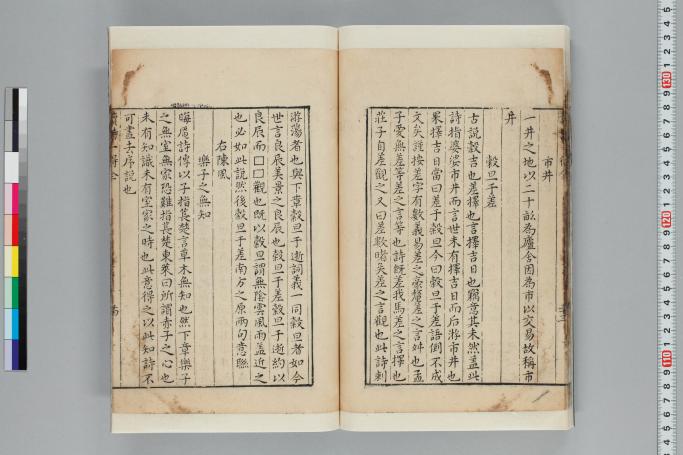 市井
一井之地以二十畝為廬舍因為市以交易故稱市
井
穀旦于差
古說穀吉也差擇也言擇吉日也竊意其未然蓋此
詩指婆娑市井而言世未有擇吉日而后游市井也
果擇吉日當曰差于穀旦今曰穀旦于差語倒不成
文矣謹按差字有數義易差之豪釐差之言舛也孟
子愛無差等差之言等也詩既差我馬差之言擇也
莊子自差觀之又曰差數睹矣差之言觀也此詩刺
游蕩者也與下章穀旦于逝詞義一同穀旦者如今
世言良辰美景之良辰也穀旦于差穀旦于逝約以
良辰而□□觀也既以穀旦謂無陰雲風雨蓋近之
也必如此說然後穀旦于差南方之原兩句意聯
右陳風
樂子之無知
晦菴詩傳以子指萇楚言草木無知也然下章樂子
之無室無家恐難指萇楚東萊曰所謂赤子之心也
未有知識未有室家之時也此意得之以此知詩不
可盡去序說也